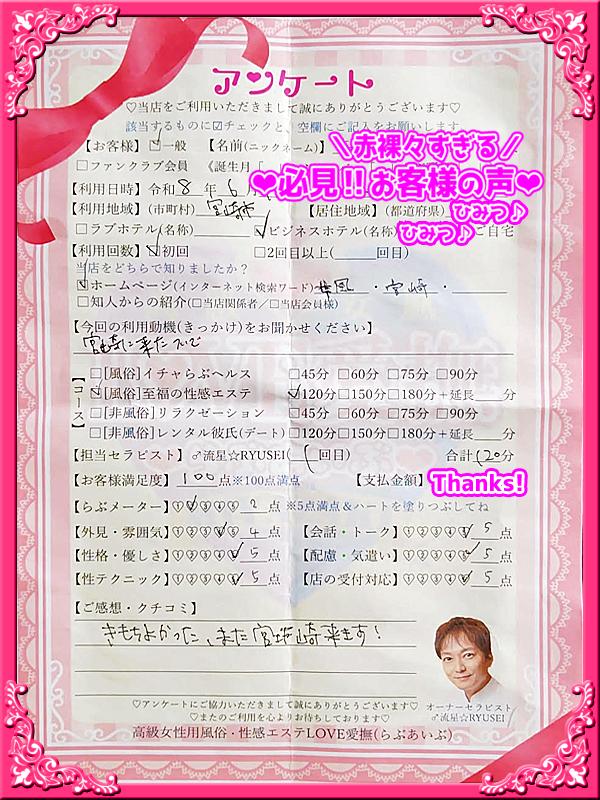 アンケート
♡当店をご利用いただきまして誠にありがとうございます♡
該当するものに☑チェックと、空欄にご記入をお願いします
【お客様】☑一般 【名前(ニックネーム)】
＼赤裸々すぎる／
□ファンクラブ会員 《誕生月「
❤必見!!お客様の声❤
【利用日時】令和8年6月
【利用地域】(市町村) 宮崎市 【居住地域】(都道府県) ひみつ♪
□ラブホテル(名称) ☑ビジネスホテル(名称) ひみつ♪ ご自宅
【利用回数】☑初回 □2回目以上(　　回目)
当店をどちらで知りましたか？
☑ホームページ(インターネット検索ワード) 性風・宮崎・
□知人からの紹介(□当店関係者／□当店会員様)
【今回の利用動機(きっかけ)をお聞かせください】
宮崎に来たついで
【コース】
□[風俗]イチャらぶヘルス □45分 □60分 □75分 □90分
☑[風俗]至福の性感エステ ☑120分□150分□180分+延長　　分
□[非風俗]リラクゼーション □45分 □60分 □75分 □90分
□[非風俗]レンタル彼氏(デート) □120分□150分□180分+延長　　分
【担当セラピスト】♂流星☆RYUSEI(1回目) 合計120分
【お客様満足度】100点※100点満点 【支払金額】 Thanks!
【らぶメーター】①②③④⑤ 2点 ※5点満点＆ハートを塗りつぶしてね
【外見・雰囲気】①②③④⑤ 4点 【会話・トーク】①②③④⑤ 5点
【性格・優しさ】①②③④⑤ 5点 【配慮・気遣い】①②③④⑤ 5点
【性テクニック】①②③④⑤ 5点 【店の受付対応】①②③④⑤ 5点
【ご感想・クチコミ】
きもちよかった、また宮崎来ます!
♡アンケートにご協力いただきまして誠にありがとうございます♡
♡またのご利用を心よりお待ちしております♡
オーナーセラピスト
♂流星☆RYUSEI
高級女性用風俗・性感エステLOVE愛撫(らぶあいぶ)